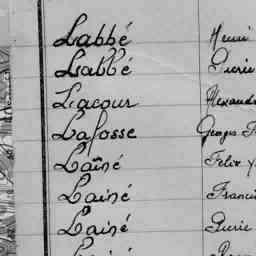 Labbé Henri
Labbé Pierie
Lacour Alexand
Lafosse Georges
Laîné Felix
Lainé Franci
Lainé Pierie
Lainé